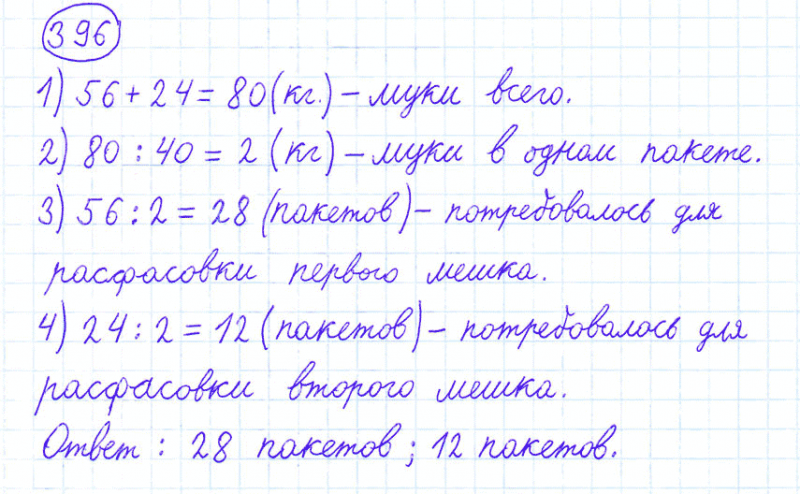 396
1) 56 + 24 = 80 (кг.) – муки всего.
2) 80 : 40 = 2 (кг) – муки в одном пакете.
3) 56 : 2 = 28 (пакетов) – потребовалось для
расфасовки первого мешка.
4) 24 : 2 = 12 (пакетов) – потребовалось для
расфасовки второго мешка.
Ответ : 28 пакетов ; 12 пакетов.